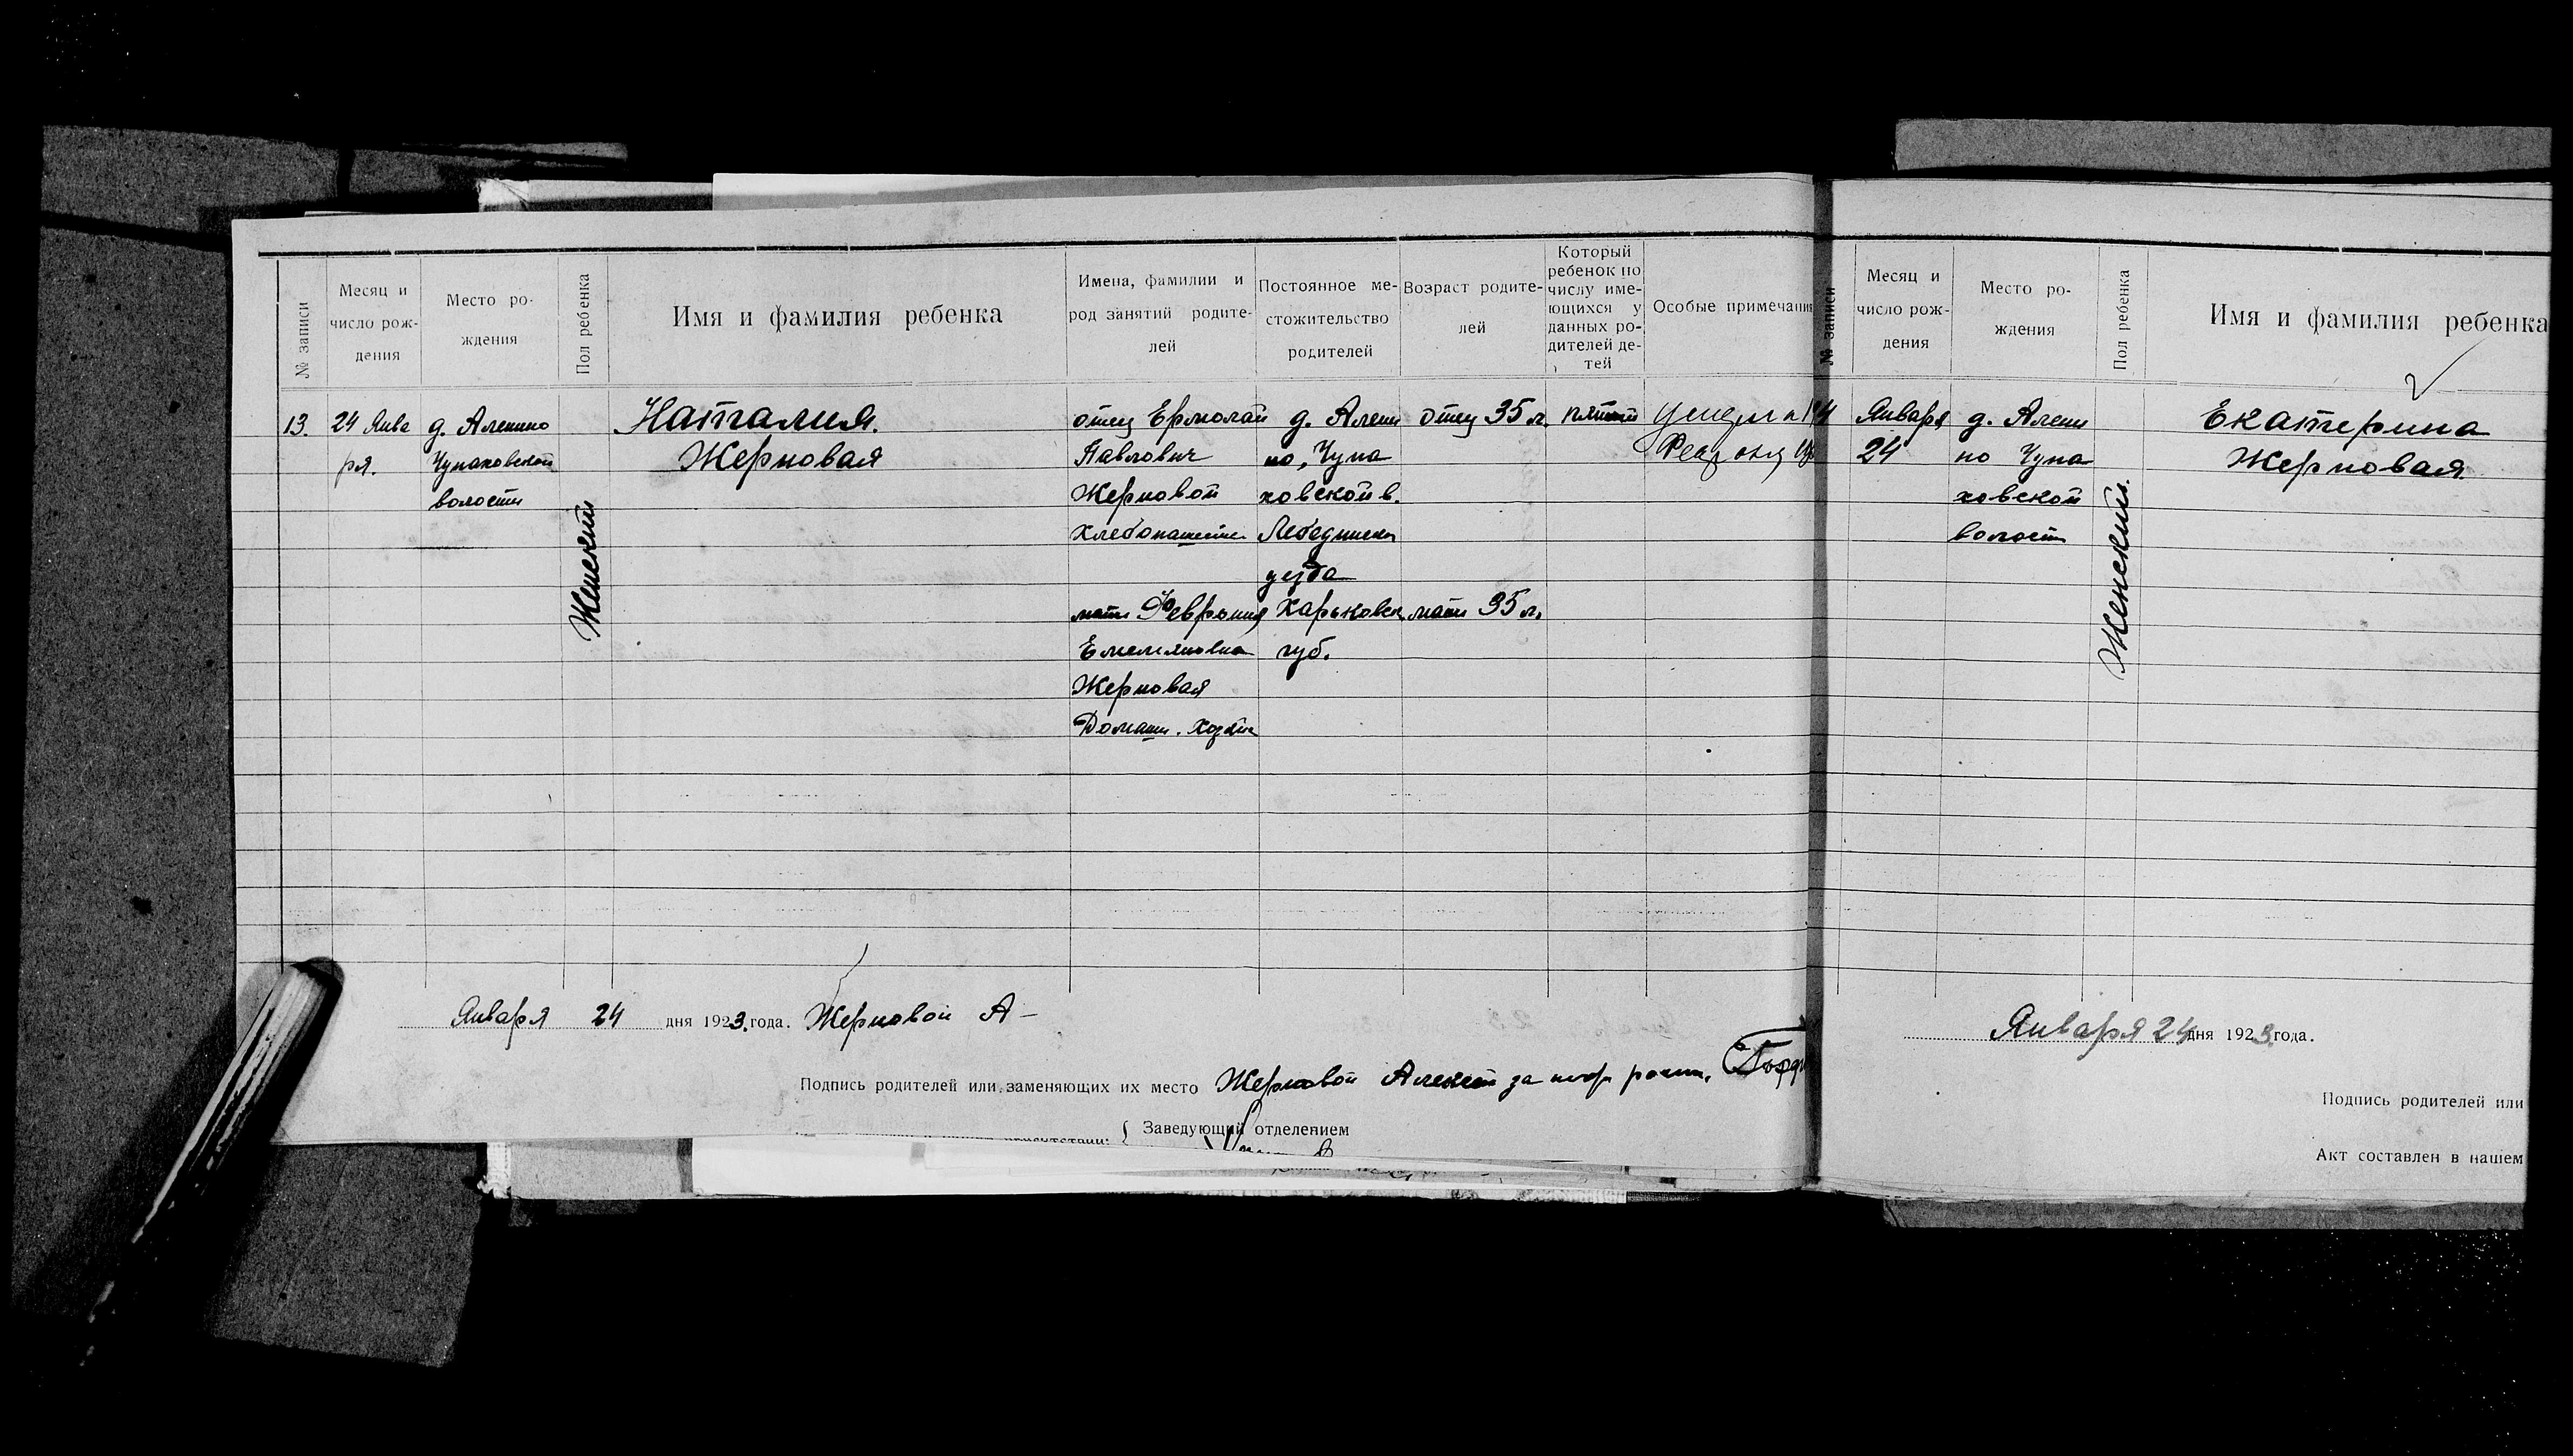 № записи
Месяц и
число рож-
дения
Место ро-
ждения
Пол ребенка
Имя и фамилия ребенка
Имена, фамилии и
род занятий родите-
лей
Постоянное ме-
стожительство
родителей
Возраст родите-
лей
Который
ребенок по
числу име-
ющихся у
данных ро-
дителей де-
тей
Особые примечания
13.
24 Янва
ря.
д. Аленино
Чупаховской
волости
Женский
Наталия.
Жерновая
отец Ермолай
Павлович
Жерновой
Хлебопашец
мать Феврония
Емельяновна
Жерновая
Домашн. хозяйк
д. Алени
но, Чупа
ховской в.
Лебединск
уезда
Харьковск
губ.
отцу 35 л.
мать 35 л.
пятый
Января 24 дня 1923. года. Жерновой А-
Подпись родителей или заменяющих их место Жерновой Алексей за
Заведующий отделением
№ записи
Месяц и
число рож-
дения
Место ро-
ждения
Пол ребенка
Имя и фамилия ребенка
14
Января
24
д. Алени
но Чупа
ховской
волости
Женский.
Екатерина
Жерновая.
Января 24 дня 1923 года.
Подпись родителей или
Акт составлен в нашем